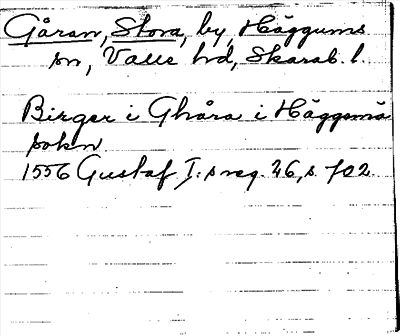 Gåran, Stora, by, Häggums
sn, Valle hd, Skarab. l.
Birger i Ghåra i Häggomå
sokn
1556 Gustaf I:s reg. 26, s. 702.